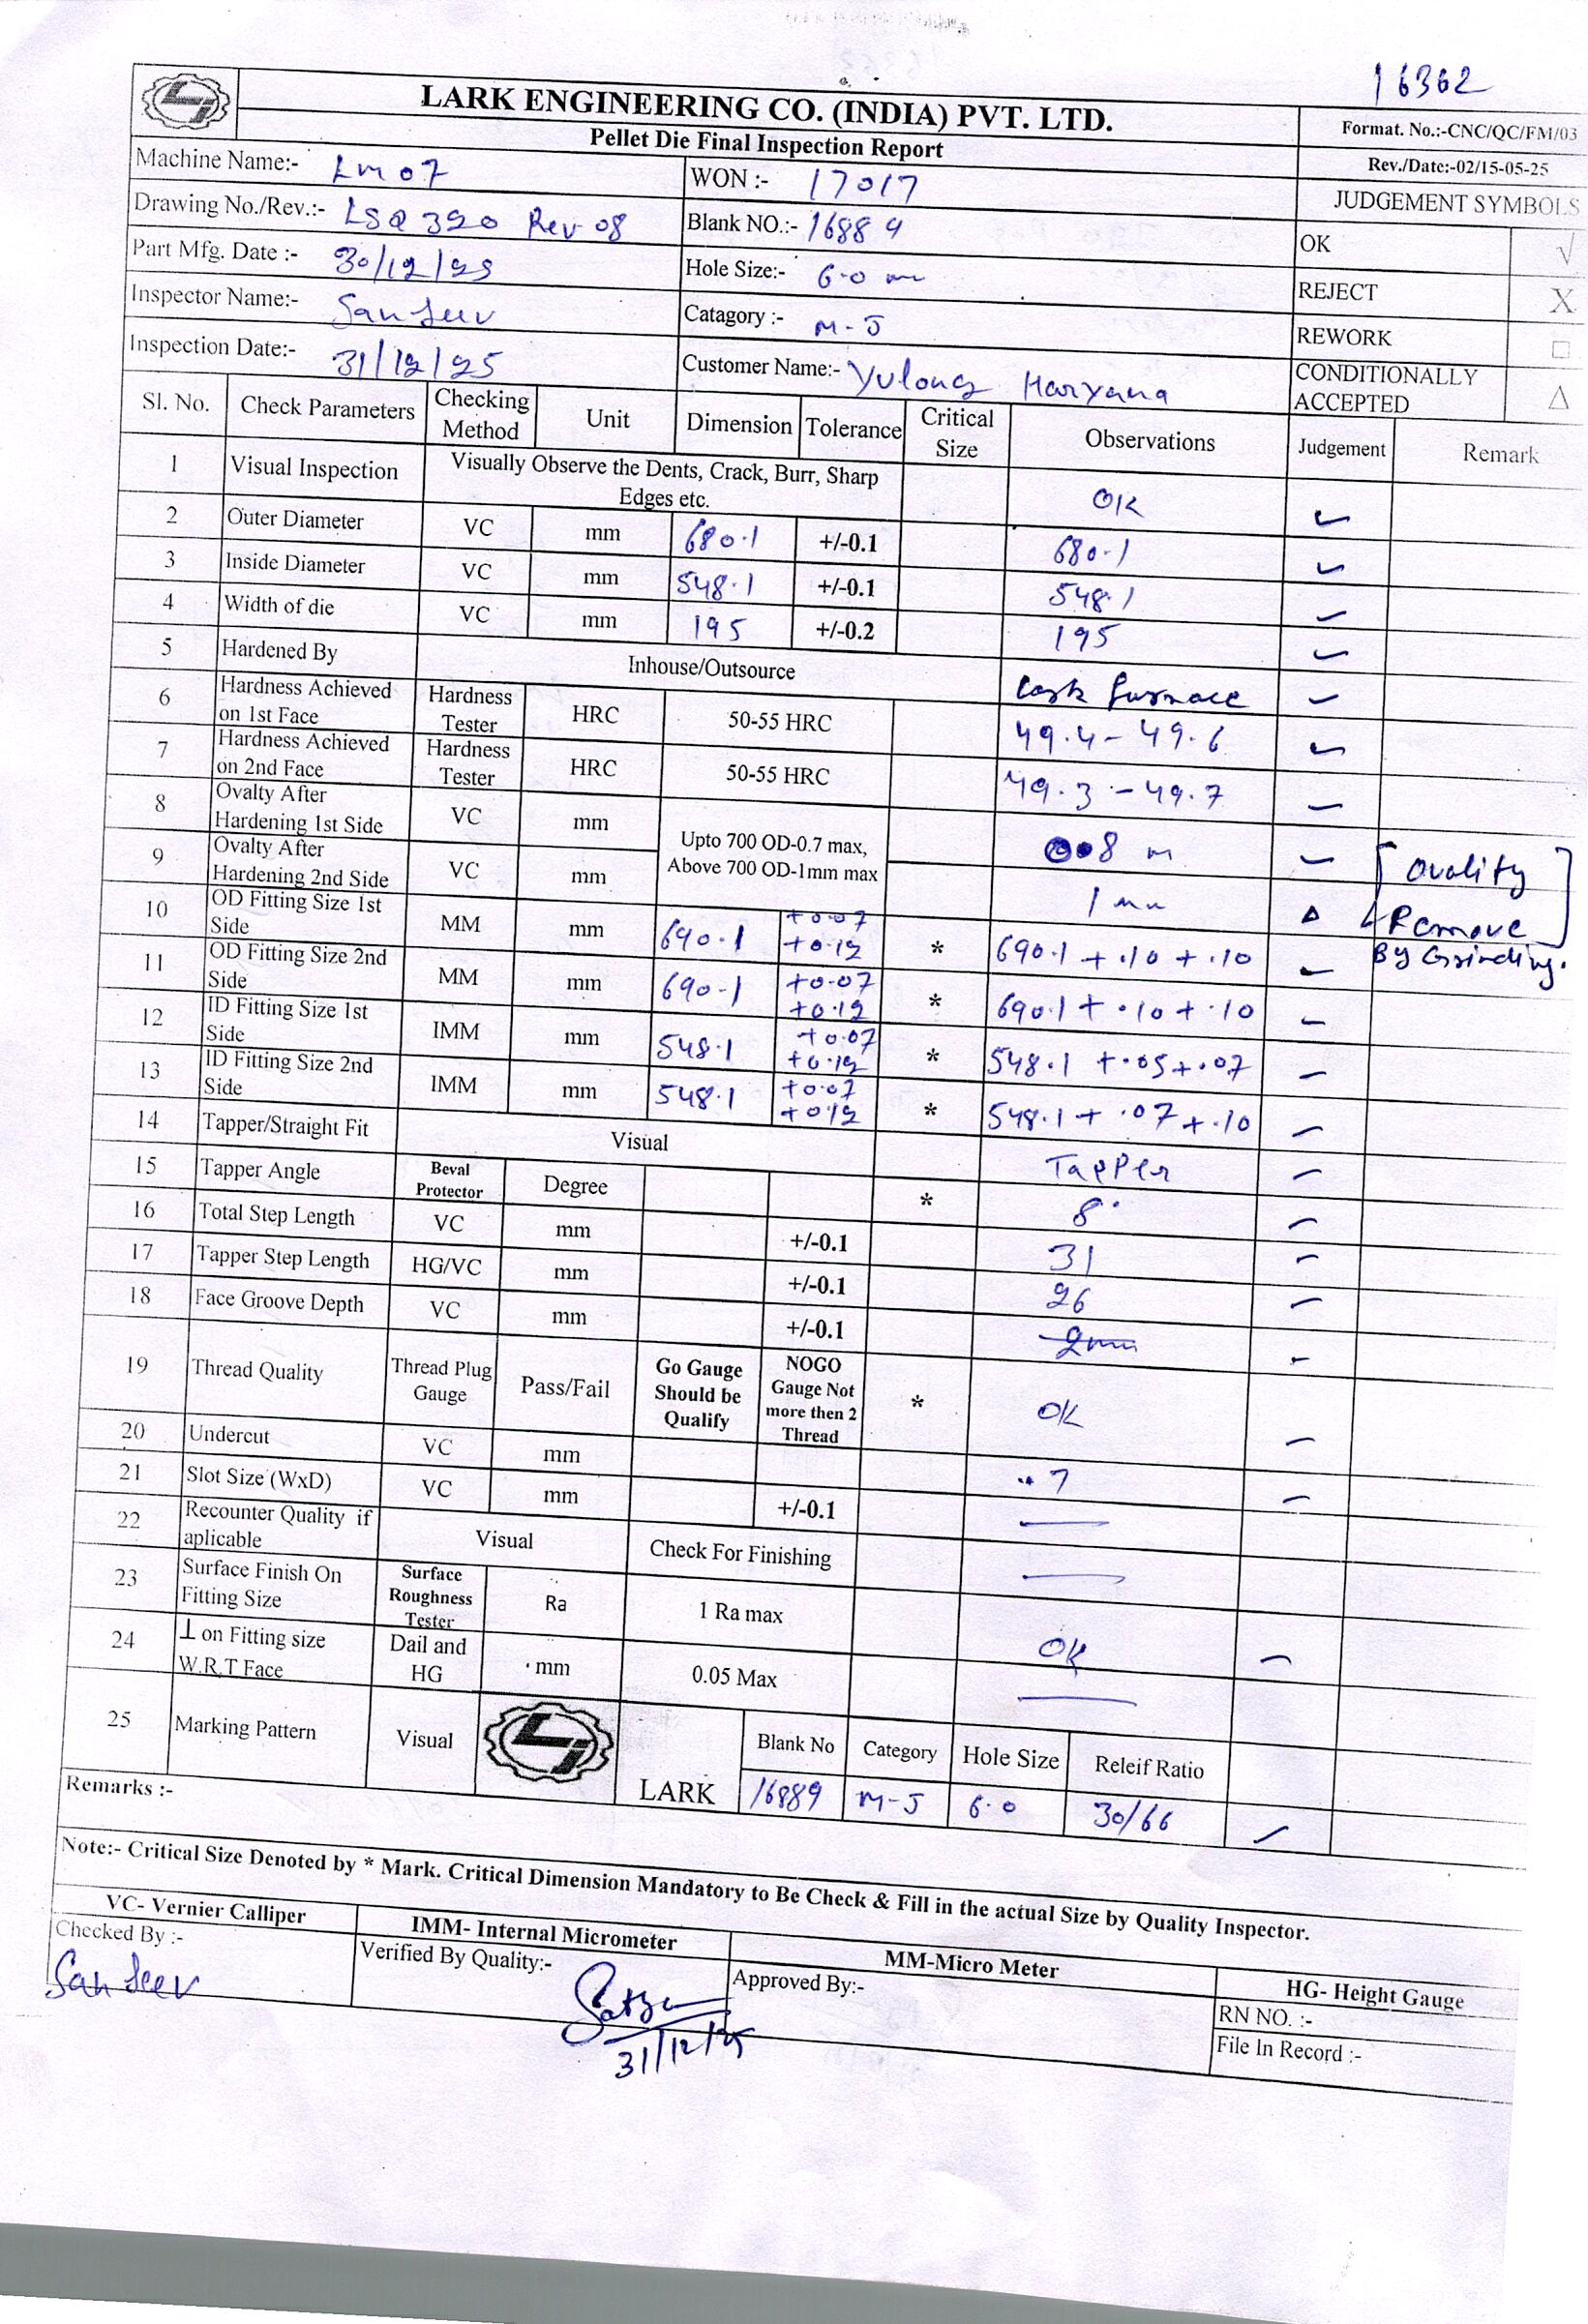 16362
LARK ENGINEERING CO. (INDIA) PVT. LTD.
Pellet Die Final Inspection Report
Format. No.:-CNC/QC/FM/03
Rev./Date:-02/15-05-25
Machine Name:- LM07 WON :- 17017
JUDGEMENT SYMBOLS
Drawing No./Rev.:- LSQ 320 Rev 08 Blank NO.:- 16889
OK √
Part Mfg. Date :- 30/12/25 Hole Size:- 6.0 m
REJECT X
Inspector Name:- Sanjeev Catagory :- M-J
REWORK □
Inspection Date:- 31/12/25 Customer Name:- Yulong Haryana
CONDITIONALLY ACCEPTED △
Sl. No. Check Parameters Checking Method Unit Dimension Tolerance Critical Size Observations Judgement Remark
1 Visual Inspection Visually Observe the Dents, Crack, Burr, Sharp Edges etc. OK ✓
2 Outer Diameter VC mm 680.1 +/-0.1 680.1 ✓
3 Inside Diameter VC mm 548.1 +/-0.1 548.1 ✓
4 Width of die VC mm 195 +/-0.2 195 ✓
5 Hardened By Inhouse/Outsource Lark furnace ✓
6 Hardness Achieved on 1st Face Hardness Tester HRC 50-55 HRC 49.4 - 49.6 ✓
7 Hardness Achieved on 2nd Face Hardness Tester HRC 50-55 HRC 49.3 - 49.7 ✓
8 Ovalty After Hardening 1st Side VC mm Upto 700 OD-0.7 max, Above 700 OD-1mm max 8 m ✓ Ovality
9 Ovalty After Hardening 2nd Side VC mm 1 mm △ Remove
10 OD Fitting Size 1st Side MM mm 690.1 +0.07 +0.12 * 690.1 + .10 + .10 ✓ By Grinding.
11 OD Fitting Size 2nd Side MM mm 690.1 +0.07 +0.12 * 690.1 + .10 + .10 ✓
12 ID Fitting Size 1st Side IMM mm 548.1 +0.07 +0.12 * 548.1 + .05 + .07 ✓
13 ID Fitting Size 2nd Side IMM mm 548.1 +0.07 +0.12 * 548.1 + .07 + .10 ✓
14 Tapper/Straight Fit Visual Tapper ✓
15 Tapper Angle Beval Protector Degree * 8° ✓
16 Total Step Length VC mm +/-0.1 31 ✓
17 Tapper Step Length HG/VC mm +/-0.1 26 ✓
18 Face Groove Depth VC mm +/-0.1 2mm ✓
19 Thread Quality Thread Plug Gauge Pass/Fail Go Gauge Should be Qualify NOGO Gauge Not more then 2 Thread * OK ✓
20 Undercut VC mm 7 ✓
21 Slot Size (WxD) VC mm +/-0.1 —
22 Recounter Quality if aplicable Visual Check For Finishing —
23 Surface Finish On Fitting Size Surface Roughness Tester Ra 1 Ra max OK ✓
24 ⊥ on Fitting size W.R.T Face Dail and HG mm 0.05 Max —
25 Marking Pattern Visual LARK Blank No Category Hole Size Releif Ratio
16889 M-J 6.0 30/66 ✓
Remarks :-
Note:- Critical Size Denoted by * Mark. Critical Dimension Mandatory to Be Check & Fill in the actual Size by Quality Inspector.
VC- Vernier Calliper IMM- Internal Micrometer MM-Micro Meter HG- Height Gauge
Checked By :- Verified By Quality:- Approved By:- RN NO. :-
Sanjeev File In Record :-
31/12/25